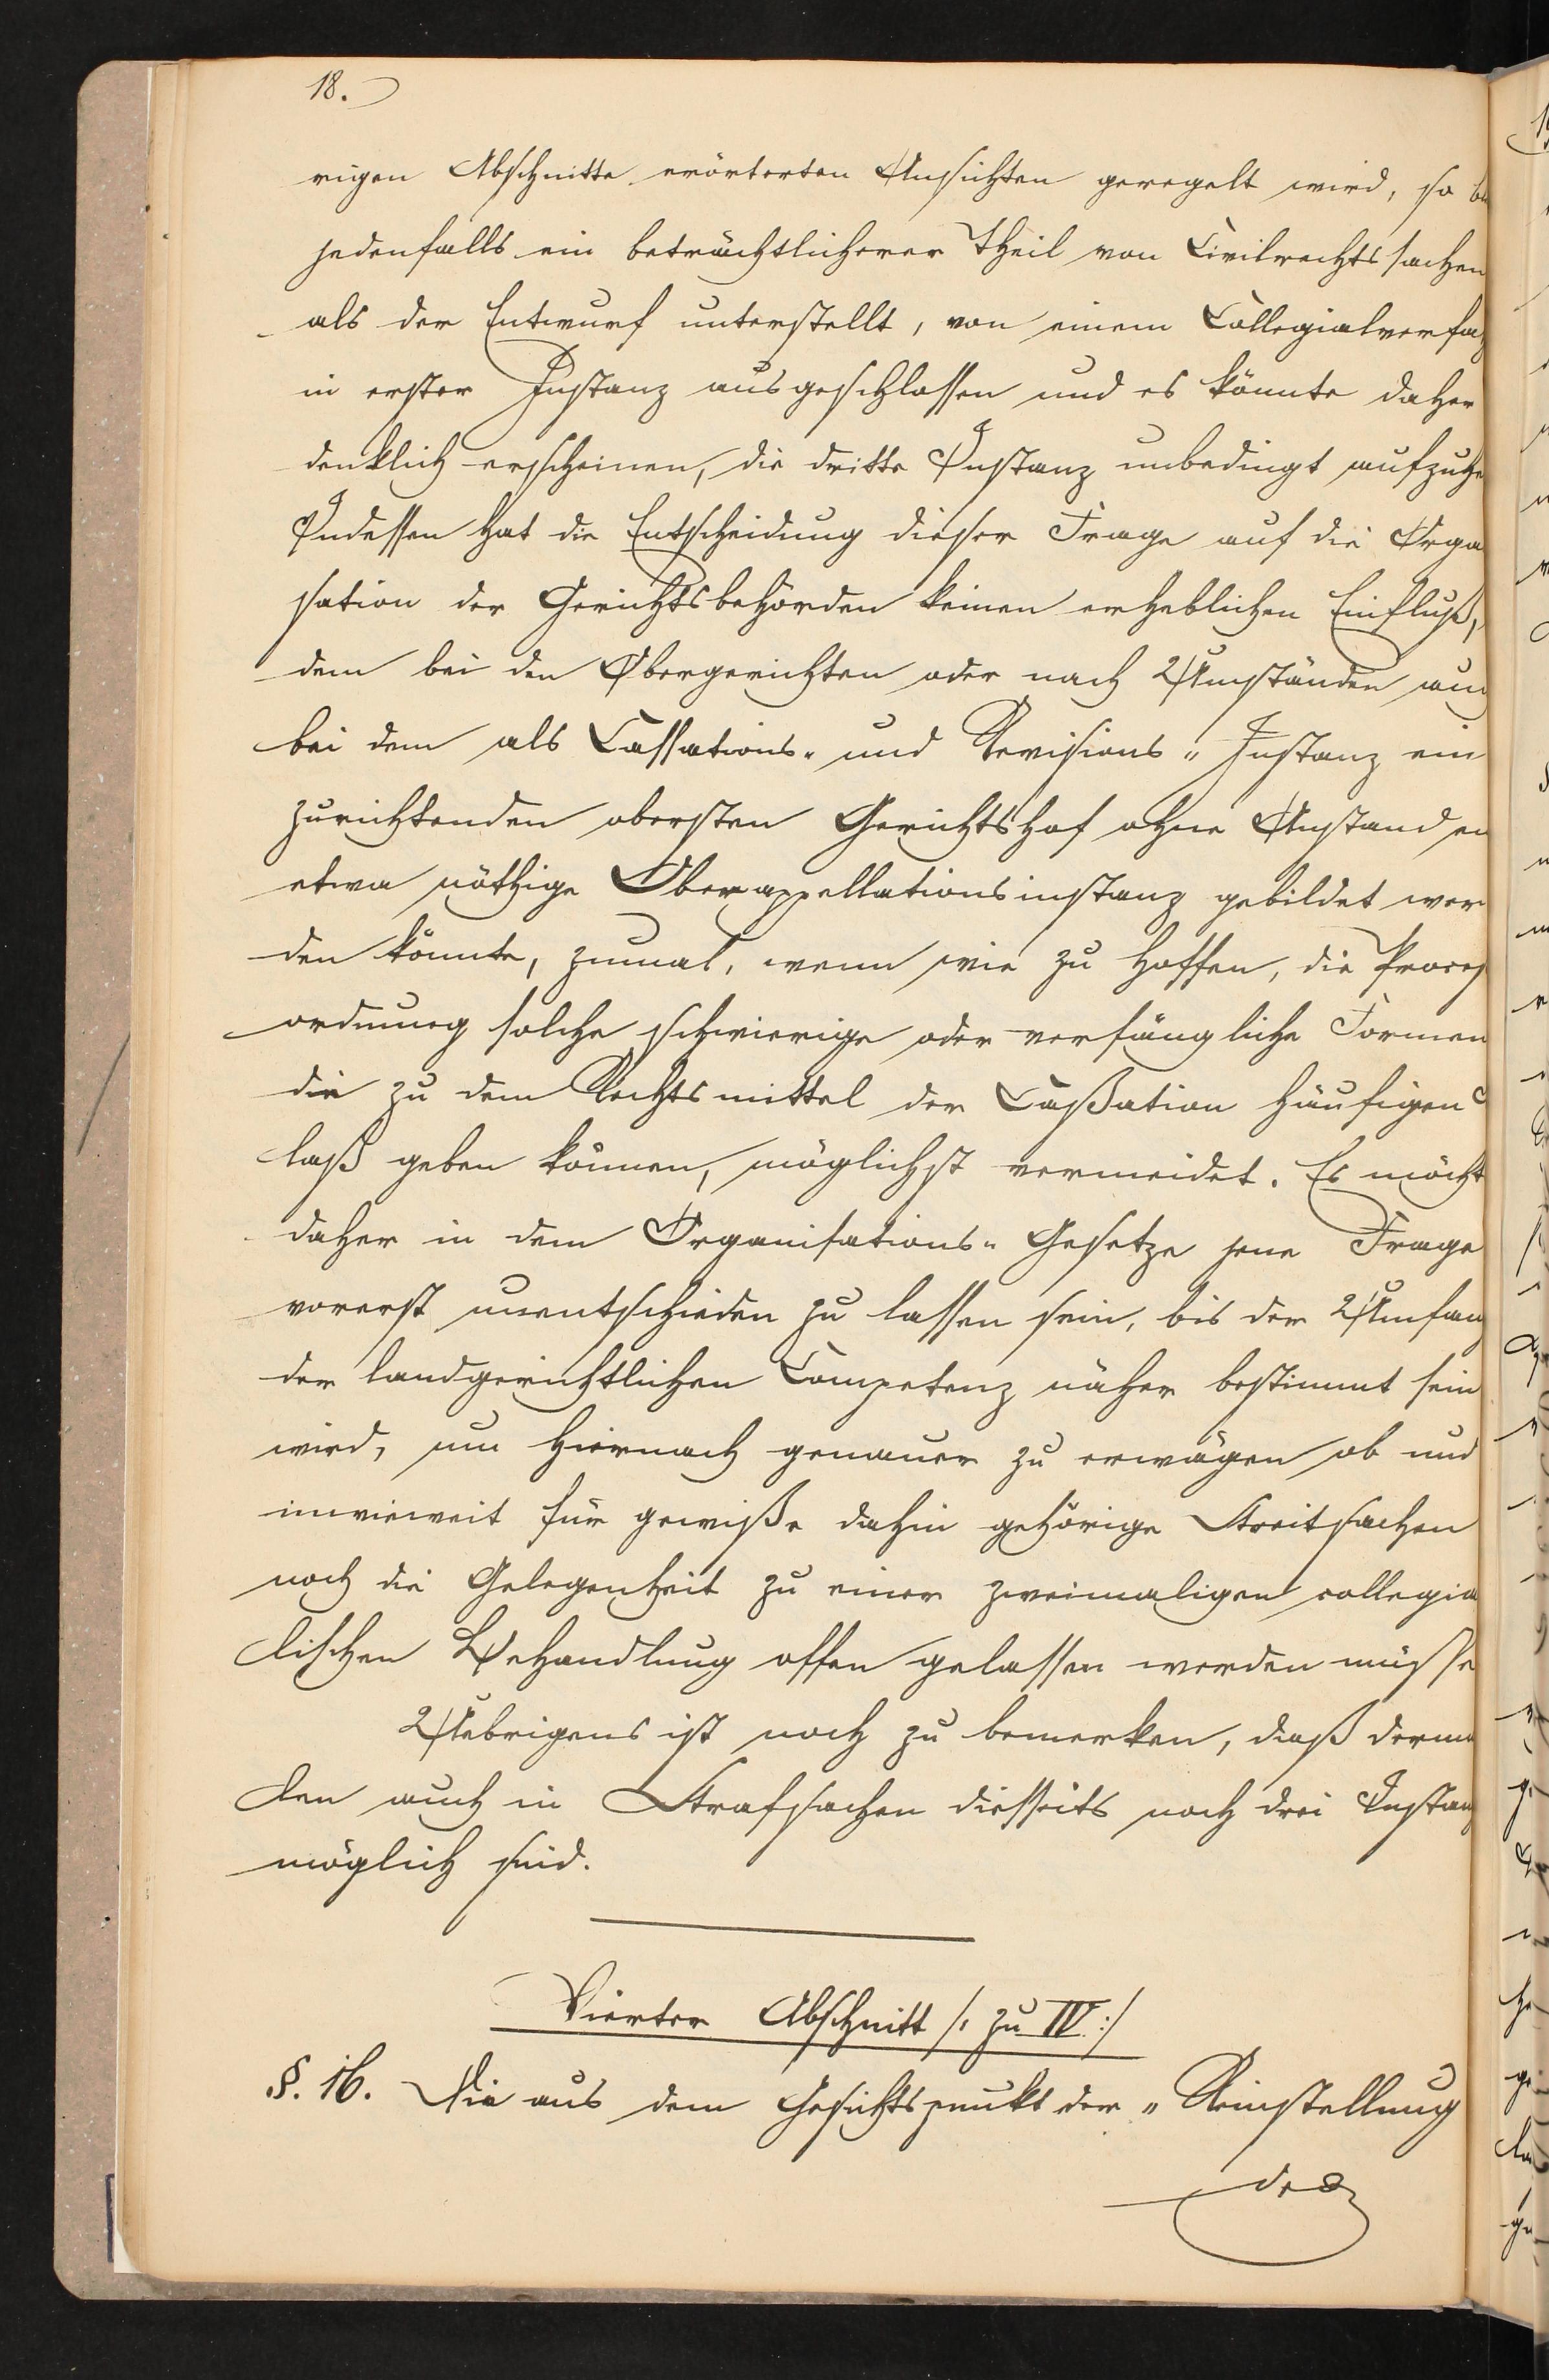 18.
rigen Abschnitte erörterten Ansichten geregelt wird, so
jedenfalls ein beträchtlicherer Theil von Civilrechtssachen
als der Entwurf unterstellt, von einem Collegialverfah
in erster Instanz ausgeschlossen und es könnte daher
denklich erscheinen, die dritte Instanz unbedingt aufzuhe
Indessen hat die Entscheidung dieser Frage auf die Orga
sation der Gerichtsbehörden keinen erheblichen Einfluß,
dem bei den Obergerichten oder nach Umständen auch
bei dem als Cassations- und Revisions-Instanz ein
zurichtenden obersten Gerichtshof ohne Anstand
etwa nöthige Oberappellationsinstanz gebildet wer
den könnte, zumal, wenn wie zu hoffen, die Proceß
ordnung solche schwierige oder verfängliche Formen
die zu dem Rechtsmittel der Caßation häufigen
laß geben können, möglichst vermeidet. Es möcht
daher in dem Organisations-Gesetze jene Frage
vorerst unentschieden zu lassen sein, bis der Umfang
der landgerichtlichen Competenz näher bestimmt sein
wird, um hiernach genauer zu erwägen ob und
inwieweit für gewiße dahin gehörige Streitsachen
noch die Gelegenheit zu einer zweimaligen collegia
lischen Behandlung offen gelassen werden müsse
Uebrigens ist noch zu bemerken, daß derma
len auch in Strafsachen diesseits noch drei Instanz
möglich sind.
Vierter Abschnitt /: zu IV :/
§. 16. Die aus dem Gesichtspunkt der "Reinstellung
des